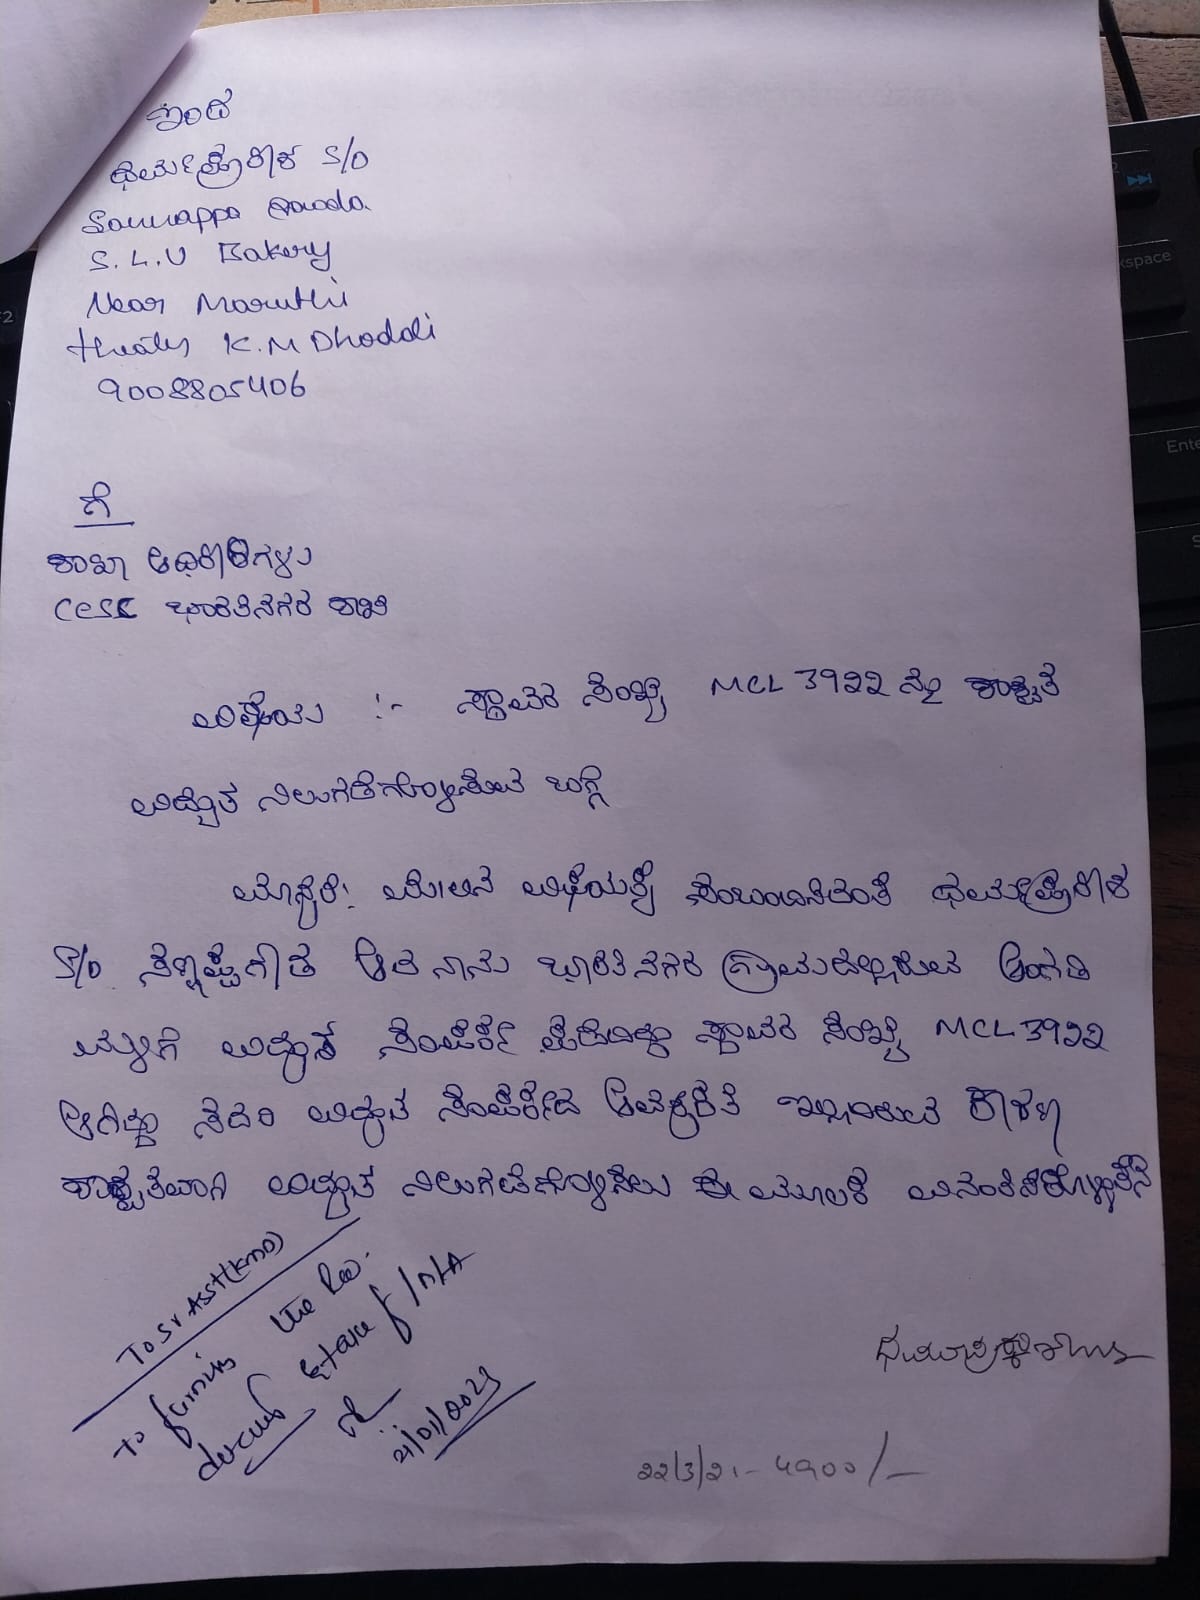 ಇಂದ
ಧರ್ಮಪ್ರಕಾಶ S/O
Sannappa Gowda
S.L.V Bakery
Near Maruthi
theater K.M Dhoddi
9008805406
ಗೆ
ಶಾಖಾ ಅಧಿಕಾರಿಗಳು
CESC ಭಾರತಿನಗರ ಶಾಖೆ
ವಿಷಯ :- ಸ್ಥಾವರ ಸಂಖ್ಯೆ MCL 3922 ನ್ನು ಶಾಶ್ವತ
ವಿದ್ಯುತ ನಿಲುಗಡೆಗೊಳಿಸುವ ಬಗ್ಗೆ
ಮಾನ್ಯರೆ: ಮೇಲಿನ ವಿಷಯಕ್ಕೆ ಸಂಬಂದಿಸಿದಂತೆ ಧರ್ಮಪ್ರಕಾಶ
S/O ಸಣ್ಣಪ್ಪಗೌಡ ಆದ ನಾನು ಭಾರತಿನಗರ ಗ್ರಾಮದಲ್ಲಿರುವ ಅಂಗಡಿ
ಮಳಿಗೆ ವಿದ್ಯುತ ಸಂಪರ್ಕ ಪಡೆದಿದ್ದು ಸ್ಥಾವರ ಸಂಖ್ಯೆ MCL 3922
ಆಗಿದ್ದು ಸದರಿ ವಿದ್ಯುತ ಸಂಪರ್ಕದ ಅವಶ್ಯಕತೆ ಇಲ್ಲದಿರುವ ಕಾರಣ
ಶಾಶ್ವತವಾಗಿ ವಿದ್ಯುತ ನಿಲುಗಡೆಗೊಳಿಸಲು ಈ ಮೂಲಕ ವಿನಂತಿಸಿಕೊಳ್ಳುತ್ತೇನೆ
To Sr Asst(KMD)
To furnish the Rev.
demand Extract f/n/A
22/3/21 - 4900/-